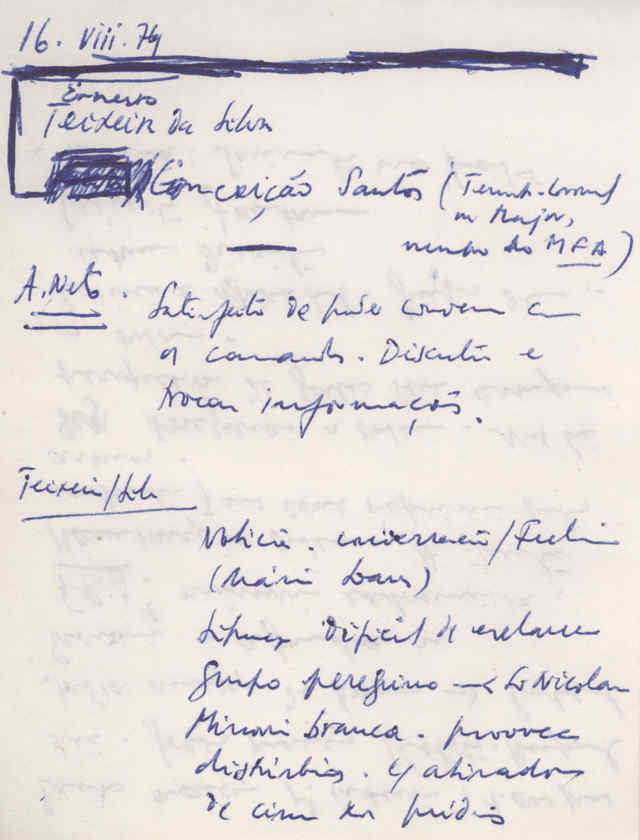 16. VIII. 74
Ernesto
Teixeira da Silva
Conceição Santos (Tenente-Coronel
ou Major,
membro do MFA)
A. Neto. Satisfeito de poder conversar com
os camaradas. Discutir e
trocar informações.
Teixeira/Silva
Notícia. conversação/Frelimo
(Mário Soares)
Situação difícil de esclarecer
Grupo peregrino → S. Nicolau
Minoria branca. provoca
distúrbios. 4 atiradores
de cima dos prédios